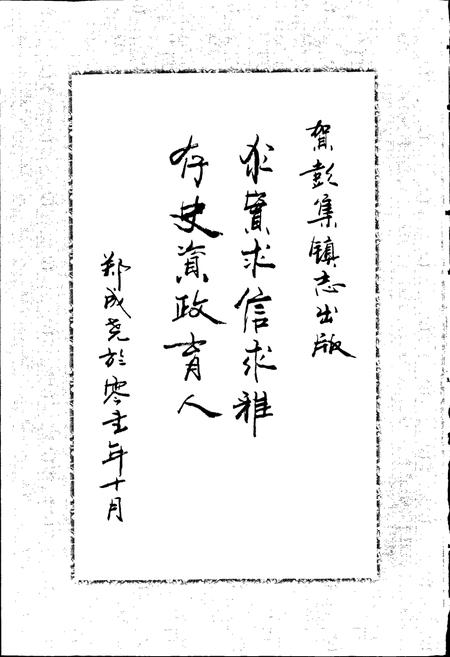 贺彭集镇志出版
求實求信求雅
存史資政育人
郑成尧於零年十月